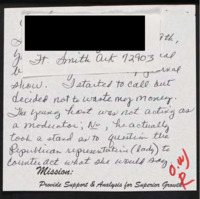 Ft. Smith Ark 72903
show. I started to call but
decided not to waste my money.
The young host was not acting as
a moderator, he actually
took a stand as to question the
Republican representative (lady) to
counteract what she would say.
Mission:
Provide Support & Analysis for Superior Growth